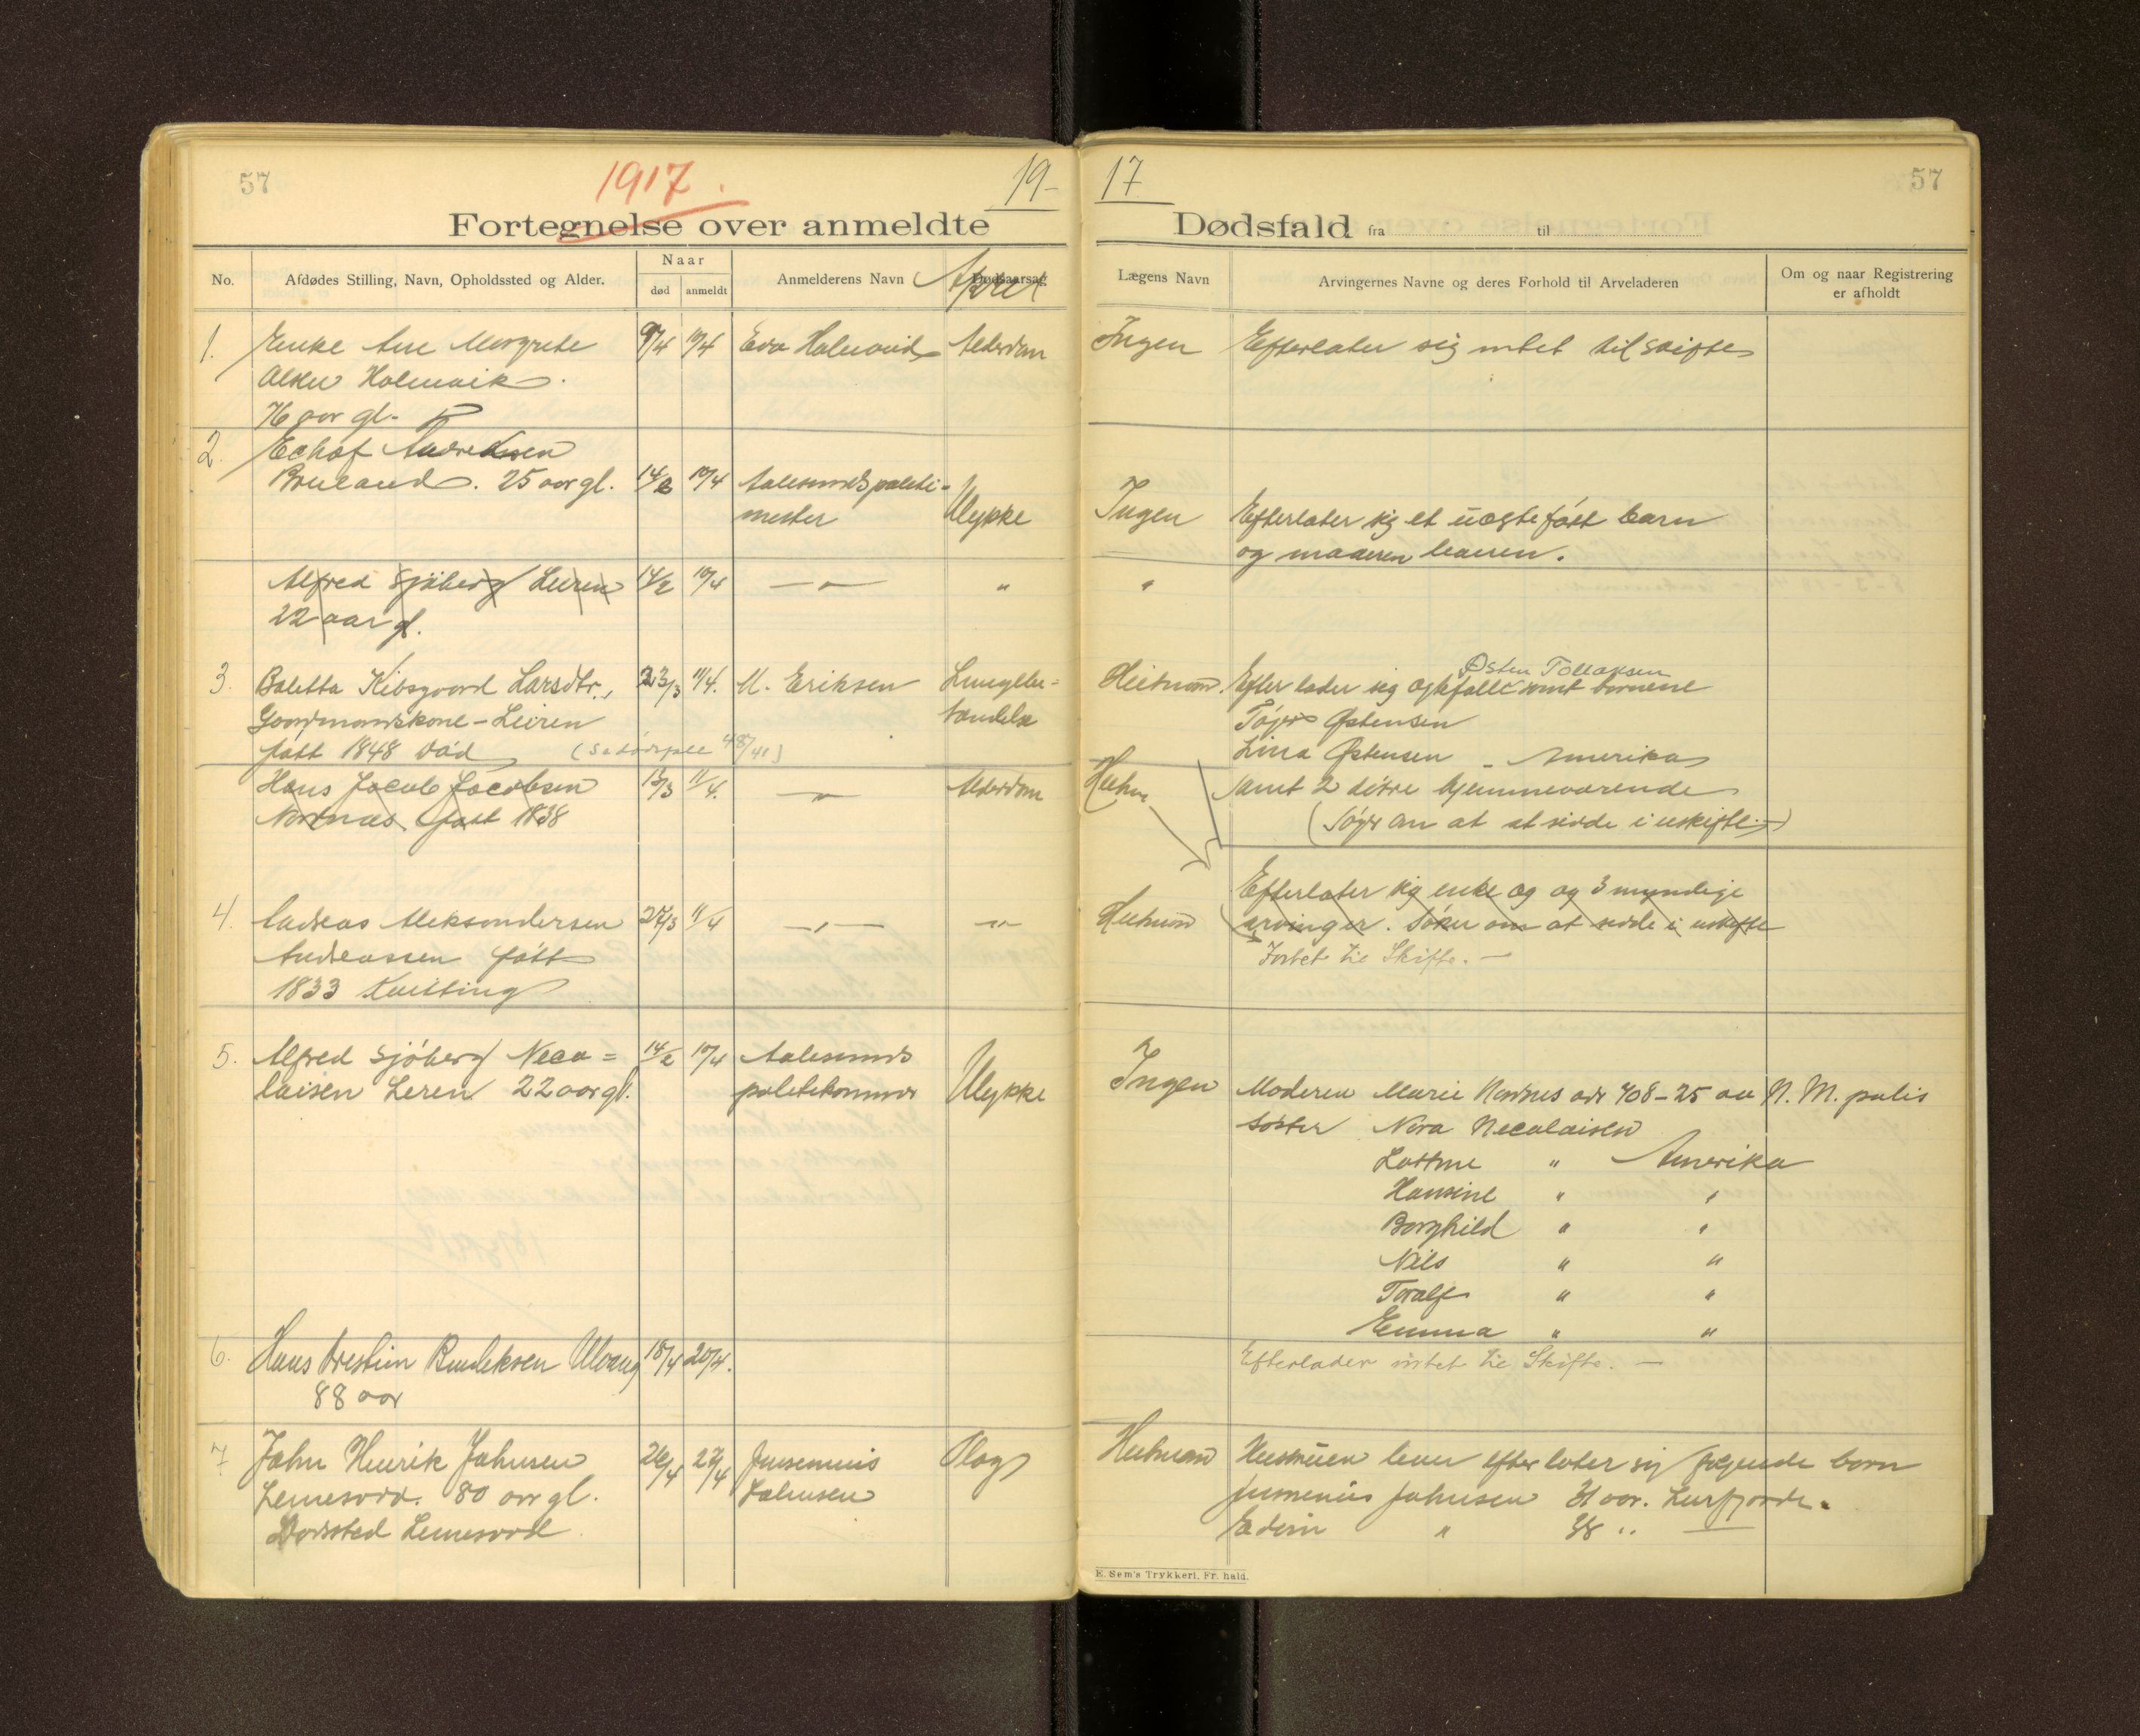 57
1917.
19-
Fortegnelse over anmeldte
No.
Afdødes Stilling, Navn, Opholdssted og Alder.
Naar
død
anmeldt
Anmelderens Navn
Dødsaarsag
April
1.
Enke Ane Margrete
Olsen Holmvik
76 aar gl.
9/4
10/4
Eva Holmvid
Alderdom
2.
Andreassen
25 aar gl.
14/2
10/4
Aalesunds politi-
mester
Ulykke
Alfred Sjöberg Leiren
22 aar gl.
14/2
10/4
— " —
"
3.
Boletta Kibsgaard Larsdtr.,
Gaardmandskone - Leiren
født 1848 død
23/3
11/4.
M. Eriksen
Lungebe-
tændelse
Hans Jacob Jacobsen
Nordnæs født 1838
13/3
11/4.
— " —
Alderdom
4.
Andreas Aleksandersen
Andreassen født
1833 Kvitting
27/3
11/4
— " —
— " —
5.
Alfred Sjöberg Neco=
laisen Leren 22 aar gl.
14/2
10/4
Aalesunds
politikammer
Ulykke
6.
Hans Kristian
88 aar
18/4
20/4.
7
John Henrik Johnsen
80 aar gl.
Dødssted
26/4
27/4
Jensenius
Johnsen
Slag
17
57
Dødsfald fra til
Lægens Navn
Arvingernes Navne og deres Forhold til Arveladeren
Om og naar Registrering
er afholdt
Ingen
Efterlater sig intet til skifte
Ingen
Efterlater sig et uægtefödt barn
og moderen
"
Østen Tollaksen
Efterlader sig samt börnene
Østensen
Lina Østensen - Amerika
samt 2 døtre hjemmeværende
(Søger om at at sidde i uskifte.—)
Efterlater sig enke og og 3 myndige
arvinger. Søker om at sidde i uskifte
Intet til Skifte. —
Ingen
Moderen Marie Nordnes adr 408-25 av N. M. polis
Søster Nora Necolaisen
" Amerika
Hansine " "
Borghild " "
Nils " "
Toralf " "
Emma " "
Efterlader intet til Skifte. —
Hustruen lever efterlater sig følgende barn
Jensenius Johnsen 31 aar.
Edvin " 38 "
E. Sem's Trykkeri, Fr. hald.